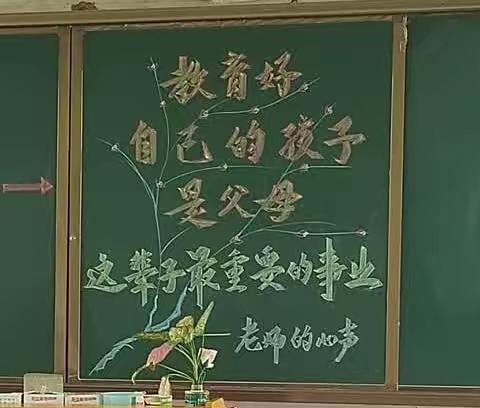 教育好
自己的孩子
是父母
这辈子最重要的事业
老师的心声